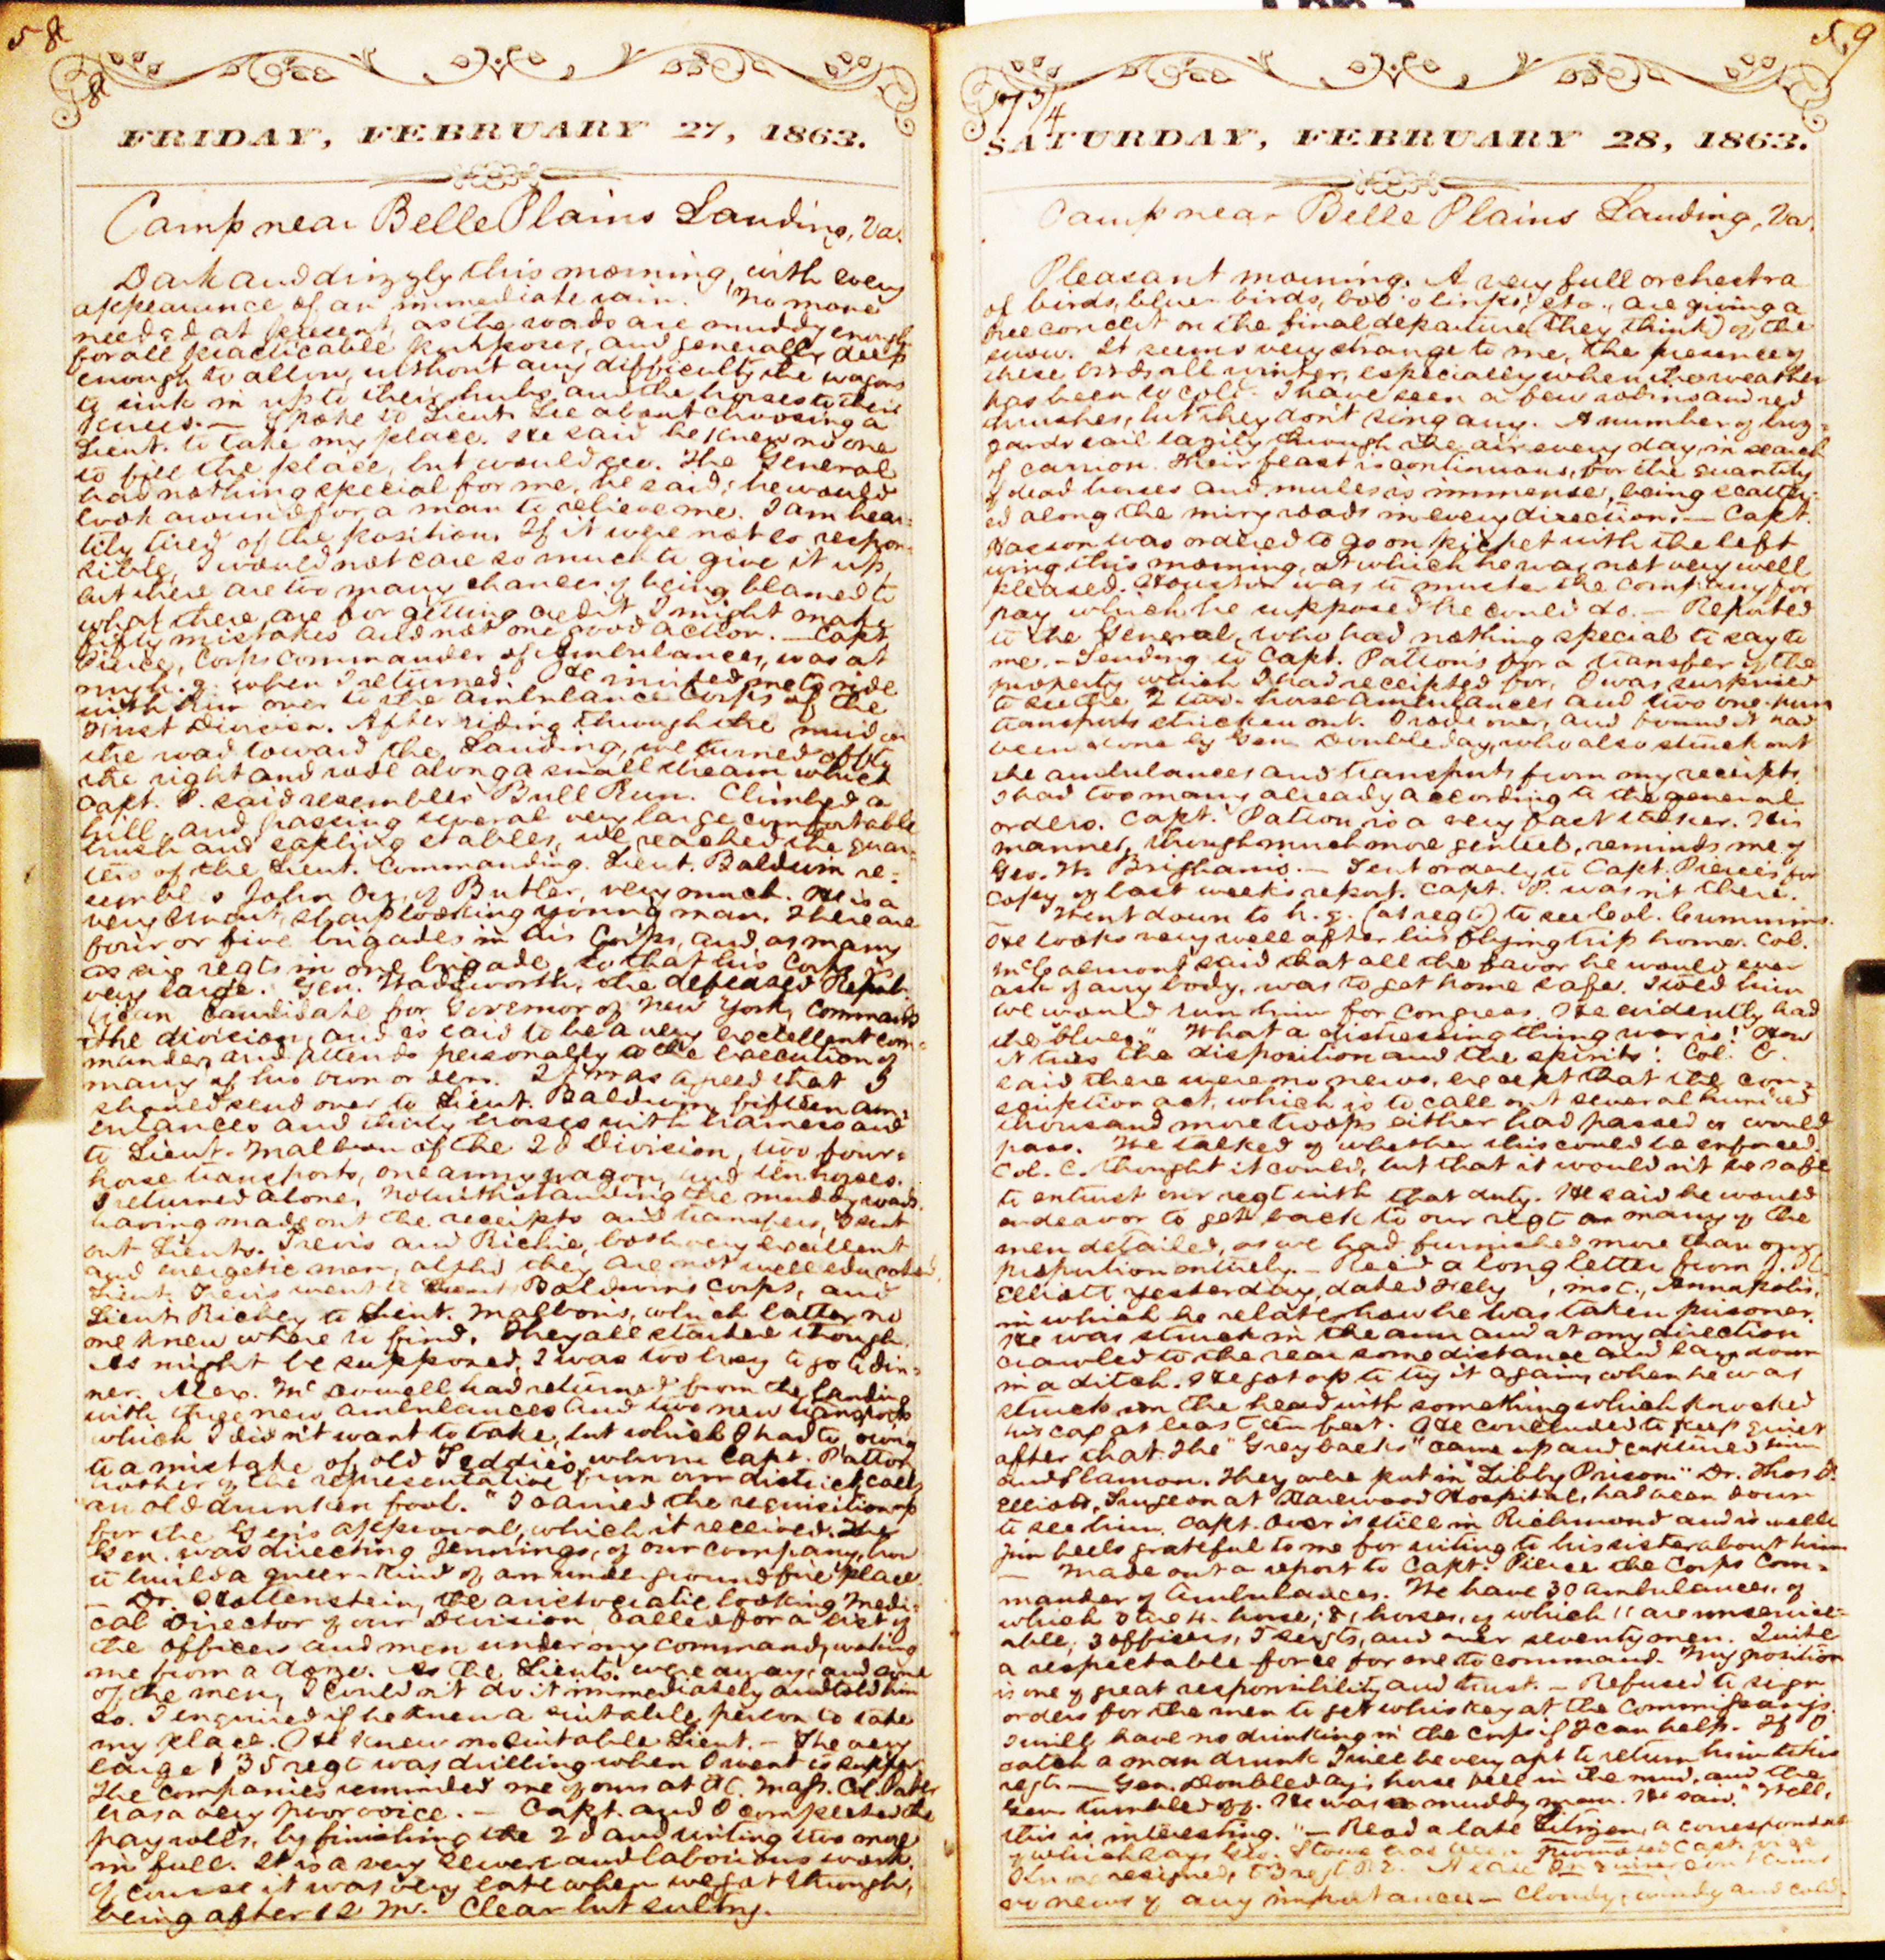 58
8
FRIDAY, FEBRUARY 27, 1863.
Camp near Belle Plains Landing, Va.
Dark and drizzly this morning, with every
appearance of an immediate rain. No more
needed at present, as the roads are muddy enough
for all practicable purposes, and generally deep
enough to allow, without any difficulty the wagons
to sink in up to their hubs and the horses to their
knees. — Spoke to Lieut. Lee about choosing a
Lieut. to take my place. He said he knew no one
to fill the place, but would see. The General
had nothing special for me, he said; he would
look around for a man to relieve me. I am hear-
tily tired of the position. If it were not so respon-
sible, I would not care so much to give it up,
but there are too many chances of being blamed to
what there are for getting credit. I might make
fifty mistakes and not one good action. — Capt.
Pierce, Corps Commander of Ambulances, was at
my h. q. when I returned. He invited me to ride
with him over to the Ambulance Corps of the
First Division. After riding through the mud on
the road toward the Landing, we turned off to
the right and rode along a small stream which
Capt. P. said resembles Bull Run. Climbed a
hill, and passing several very large comfortable
brush and sapling stables, we reached the quar-
ters of the Lieut. Commanding. Lieut. Baldwin re-
sembles John Orr, of Butler, very much. He is a
very smart, sharp looking young man. There are
four or five brigades in his Corps, and as many
as six regts in one brigade, so that his Corps is
very large. Gen. Wadsworth, the defeated Repub-
lican candidate for Governor of New York, commands
the division, and is said to be a very excellent com-
mander, and attends personally to the execution of
many of his own orders. It was agreed that I
should send over to Lieut. Baldwin, fifteen am-
bulances and thirty horses with harness and
to Lieut. Malbon of the 2d Division, two four-
horse transports, one army wagon, and ten horses.
I returned alone, notwithstanding the muddy roads.
having made out the receipts and transfers, I sent
out Lieuts. Trevis and Richie, both very excellent
and energetic men, altho they are not well educated.
Lieut. Trevis went to Lieut. Baldwin's Corps, and
Lieut. Richey to Lieut. Malbon's, which latter no
one knew where to find. They all started though.
As might be supposed, I was too busy to go to din-
ner. Alex. McDowell had returned from the Landing
with three new ambulances and two new transports
which I didn't want to take, but which I had to, owing
to a mistake of old Teddie's whom Capt. Patton
brother of the representative from our district, calls
"an old drunken fool." I carried the requisition up
for the Gen's approval, which it received. The
Gen. was directing Jennings, of our company, how
to build a queer kind of an underground fire place.
— Dr. Hollenstein, the aristocratic looking Medi-
cal Director of our Division called for a list of
the officers and men under my command, waking
me from a doze. As the Lieuts. were away, and some
of the men, I couldn't do it immediately and told him
so. I enquired if he knew a suitable person to take
my place. He knew no suitable Lieut. — The very
large 135 regt was drilling when I went to supper.
The companies reminded me of ours at
has a very poor voice. — Capt. and I completed the
pay rolls, by finishing the 2d and writing two more
in full. It is a very severe and laborious work.
Of course it was very late when we got through,
being after 12 M. Clear but sultry.
59
7 3/4
SATURDAY, FEBRUARY 28, 1863.
Camp near Belle Plains Landing, Va.
Pleasant morning. A very full orchestra
of birds, blue-birds, bob-o-links, etc., are giving a
free concert on the final departure (they think) of the
snow. It seems very strange to me, the presence of
these birds all winter, especially when the weather
has been so cold. I have seen a few robins and red
thrushes, but they don't sing any. A number of buz-
zards sail lazily through the air every day, in search
of carrion. Their feast is continuous, for the quantity
of dead horses and mules is immense, being scatter-
ed along the miry roads in every direction. — Capt.
was ordered to go on picket with the left
wing this morning, at which he was not very well
pleased. Houston was to muster the company for
pay which he supposed he could do. — Reported
to the General, who had nothing special to say to
me. — Sending to Capt. Patton's for a transfer of the
property which I had receipted for, I was surprised
to see the 2 two-horse ambulances and two one-hun
transports stricken out. I rode over, and found it had
been done by Gen. Doubleday, who also struck out
the ambulances and transports from my receipts.
I had too many already according to the general
orders. Capt. Patton is a very fast talker. His
manner, though much more genteel, reminds me of
Geo. W. Brigham's. — Sent orderly to Capt. Pierce's for
copy of last week's report. Capt. P. wasn't there.
— Went down to h. q. (at regt) to see Col. Cummins.
He looks very well after his flying trip home. Col.
McCalmont said that all the favor he would ever
ask of any body, was to get home safe. I told him
we would run him for Congress. He evidently had
the "blues." What a distressing thing war is! How
it tries the disposition and the spirits! Col. C.
said there were no news, except that the con-
scription act, which is to call out several hundred
thousand more troops either had passed or would
pass. We talked of whether this could be enforced.
Col. C. thought it could, but that it wouldn't be safe
to entrust our regt with that duty. He said he would
endeavor to get back to our regt as many of the
men detailed, as we had furnished more than our
proportion entirely. — Rec'd a long letter from J. H.
Elliott yesterday, dated Feby , inst., Annapolis,
in which he relates how he was taken prisoner.
He was struck in the arm and at my direction
crawled to the rear some distance and lay down
in a ditch. He got up to try it again, when he was
struck on the head with something which knocked
his cap at least ten feet. He concluded to keep quiet
after that. The "Grey backs" came up and captured him
and Slamon. They were put in "Libby Prison." Dr. Thos. B.
Elliott, Surgeon at Harewood Hospital, had been down
to see him. Capt. Over is still in Richmond and is well.
Jim feels grateful to me for writing to his sister about him
— Made out a report to Capt. Pierce the Corps Com-
mander of Ambulances. We have 30 ambulances, of
which 3 are 4-horse; 81 horses, of which 11 are unservice-
able; 3 officers, 5 sergts, and over seventy men. Quite
a respectable force for one to command. My position
is one of great responsibility and trust. — Refused to sign
orders for the men to get whiskey at the Commissary's.
I will have no drinking in the Corps if I can help. If I
catch a man drunk I will be very apt to return him to his
regt. — Gen. Doubleday's horse fell in the mud, and the
Gen. tumbled off. He was a muddy man. He said, "Well,
this is interesting." — Read a late Citizen, a correspondent
of which says Geo. Stowe has been promoted Capt. vice
Knox resigned,
no news of any importance. — Cloudy, windy and cold.